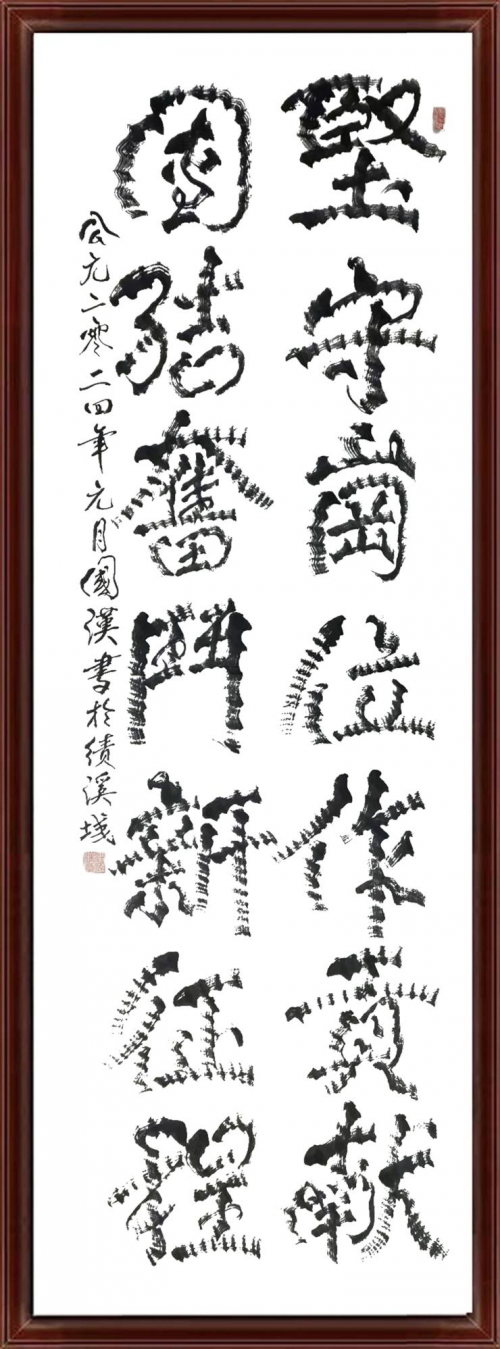 堅守崗位作貢献
团結奮鬥新征程
公元二零二四年元月國漢書於績溪